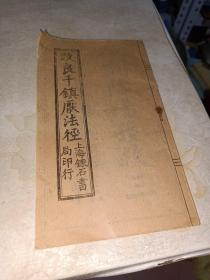 改良千鎮厭法經
上海鍊石書
局印行